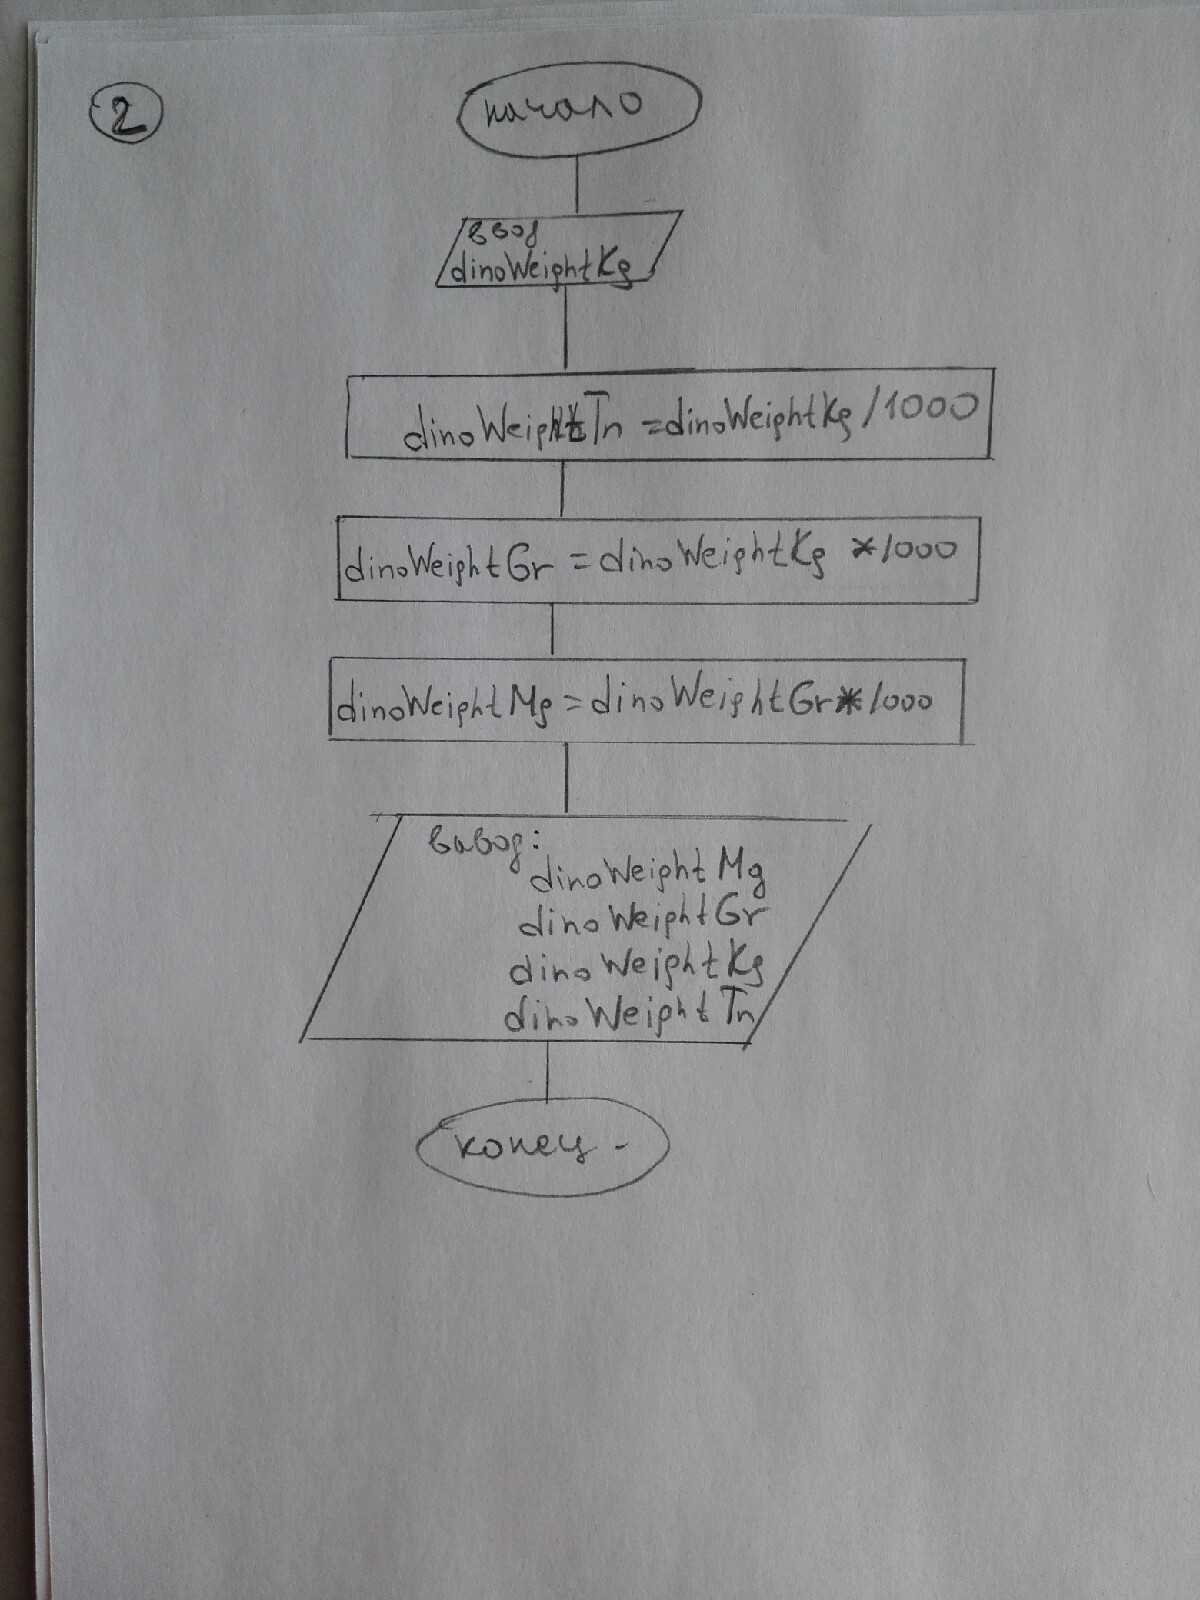 2
начало
ввод
dinoWeightKg
dinoWeightTn = dinoWeightKg / 1000
dinoWeightGr = dinoWeightKg * 1000
dinoWeightMg = dinoWeightGr * 1000
вывод:
dinoWeightMg
dinoWeightGr
dinoWeightKg
dinoWeightTn
конец